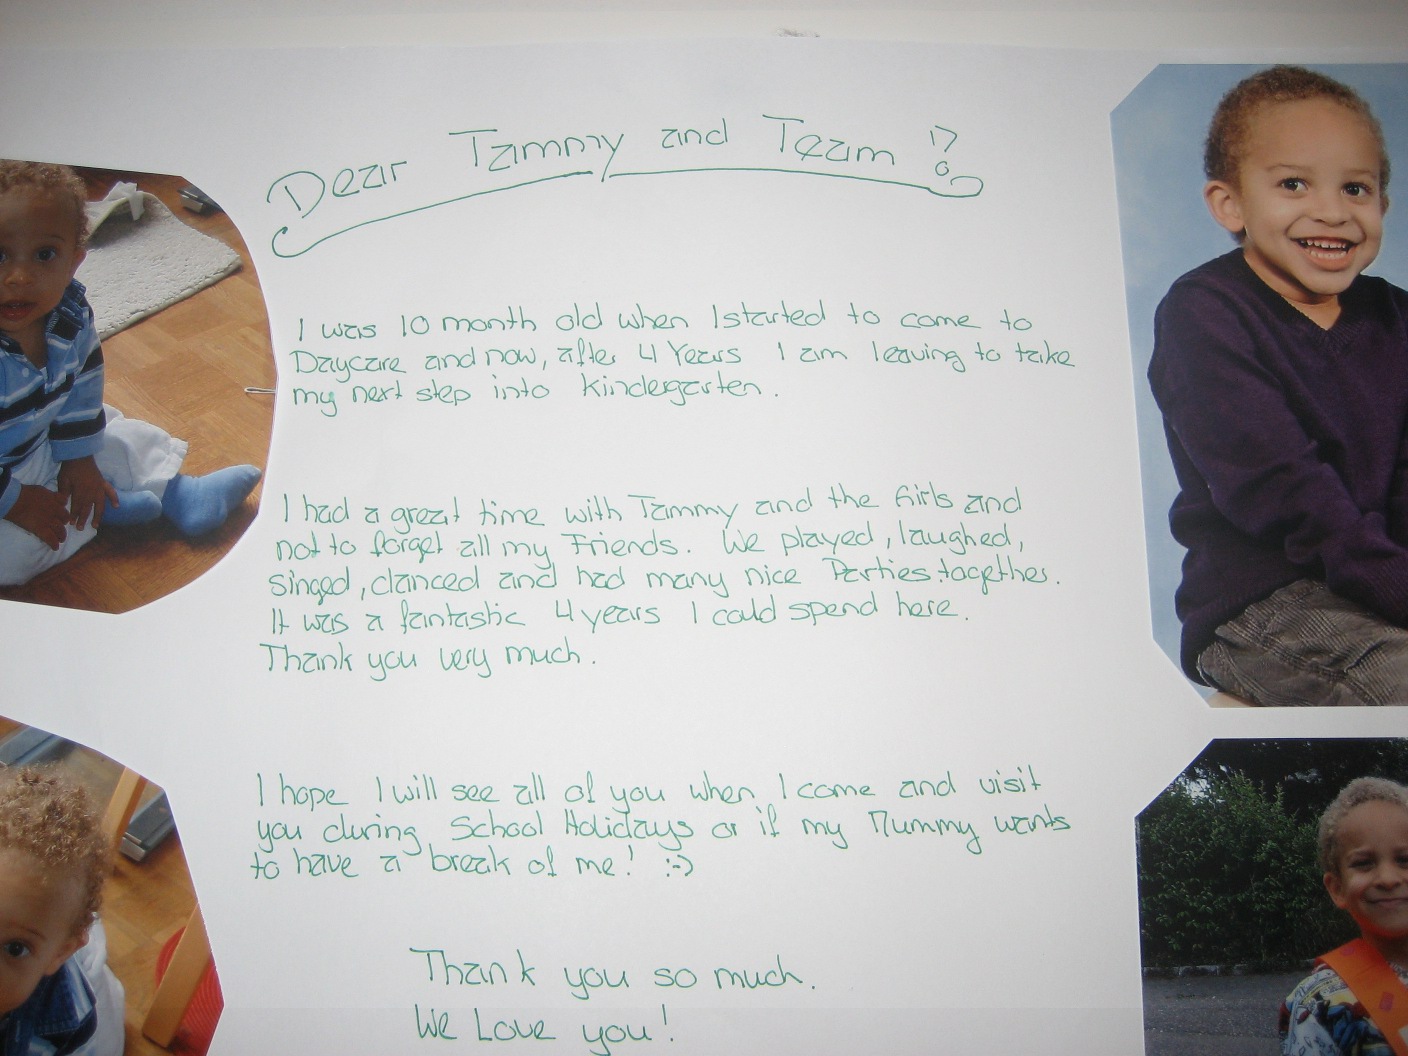 Dear Tammy and Team !
I was 10 month old when I started to come to
Daycare and now, after 4 Years I am leaving to take
my next step into Kindergarten.
I had a great time with Tammy and the Girls and
not to forget all my Friends. We played, laughed,
singed, danced and had many nice Parties together.
It was a fantastic 4 years I could spend here.
Thank you very much.
I hope I will see all of you when I come and visit
you during School Holidays or if my Mummy wants
to have a break of me! :-)
Thank you so much.
We Love you!